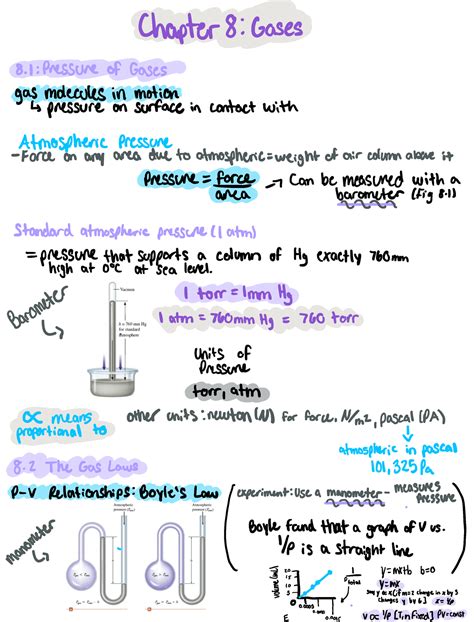 Chapter 8: Gases
8.1: Pressure of Gases
gas molecules in motion
↳ pressure on surface in contact with
Atmospheric Pressure
- Force on any area due to atmospheric = weight of air column above it
Pressure = force/area
→ Can be measured with a barometer (fig 8.1)
Standard atmospheric pressure (1 atm)
= pressure that supports a column of Hg exactly 760mm
high at 0°C at sea level.
Barometer
Vacuum
h = 760 mm Hg
for standard
atmosphere
1 torr = 1mm Hg
1 atm = 760mm Hg = 760 torr
units of
Pressure
torr, atm
∝ means
proportional to
other units: newton (N) for force, N/m2, pascal (PA)
atmospheric in pascal
101,325 Pa
8.2 The Gas Laws
P-V Relationships: Boyle's Law
(experiment: Use a manometer - measures
pressure
manometer
Atmospheric
Atmospheric
Boyle found that a graph of V vs.
1/P is a straight line
volume (mL)
20
15
10
5
0.005
0.010
0.015
1/P total
y=mx+b b=0
y=mx
v ∝ 1/p [T,n fixed] PV=const
E